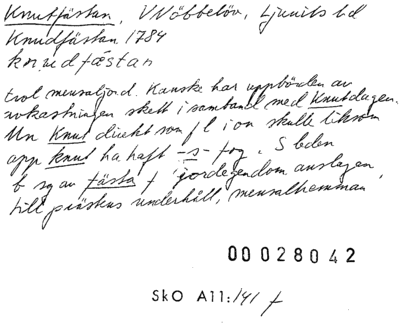 Knutfästan, V Vöbbelöv, Ljunits hd
Knudfästan 1784
knudfästan
trol mensaljord. Kanske har uppbörden av
avkastningen skett i samband med Knutdagen.
Mn Knut direkt som f l i on skulle liksom
app knut ha haft -s- fog. S leden
b sg av fästa f 'jordegendom anslagen
till prästens underhåll, mensalhemman'
00028042
SkO A11:141 f